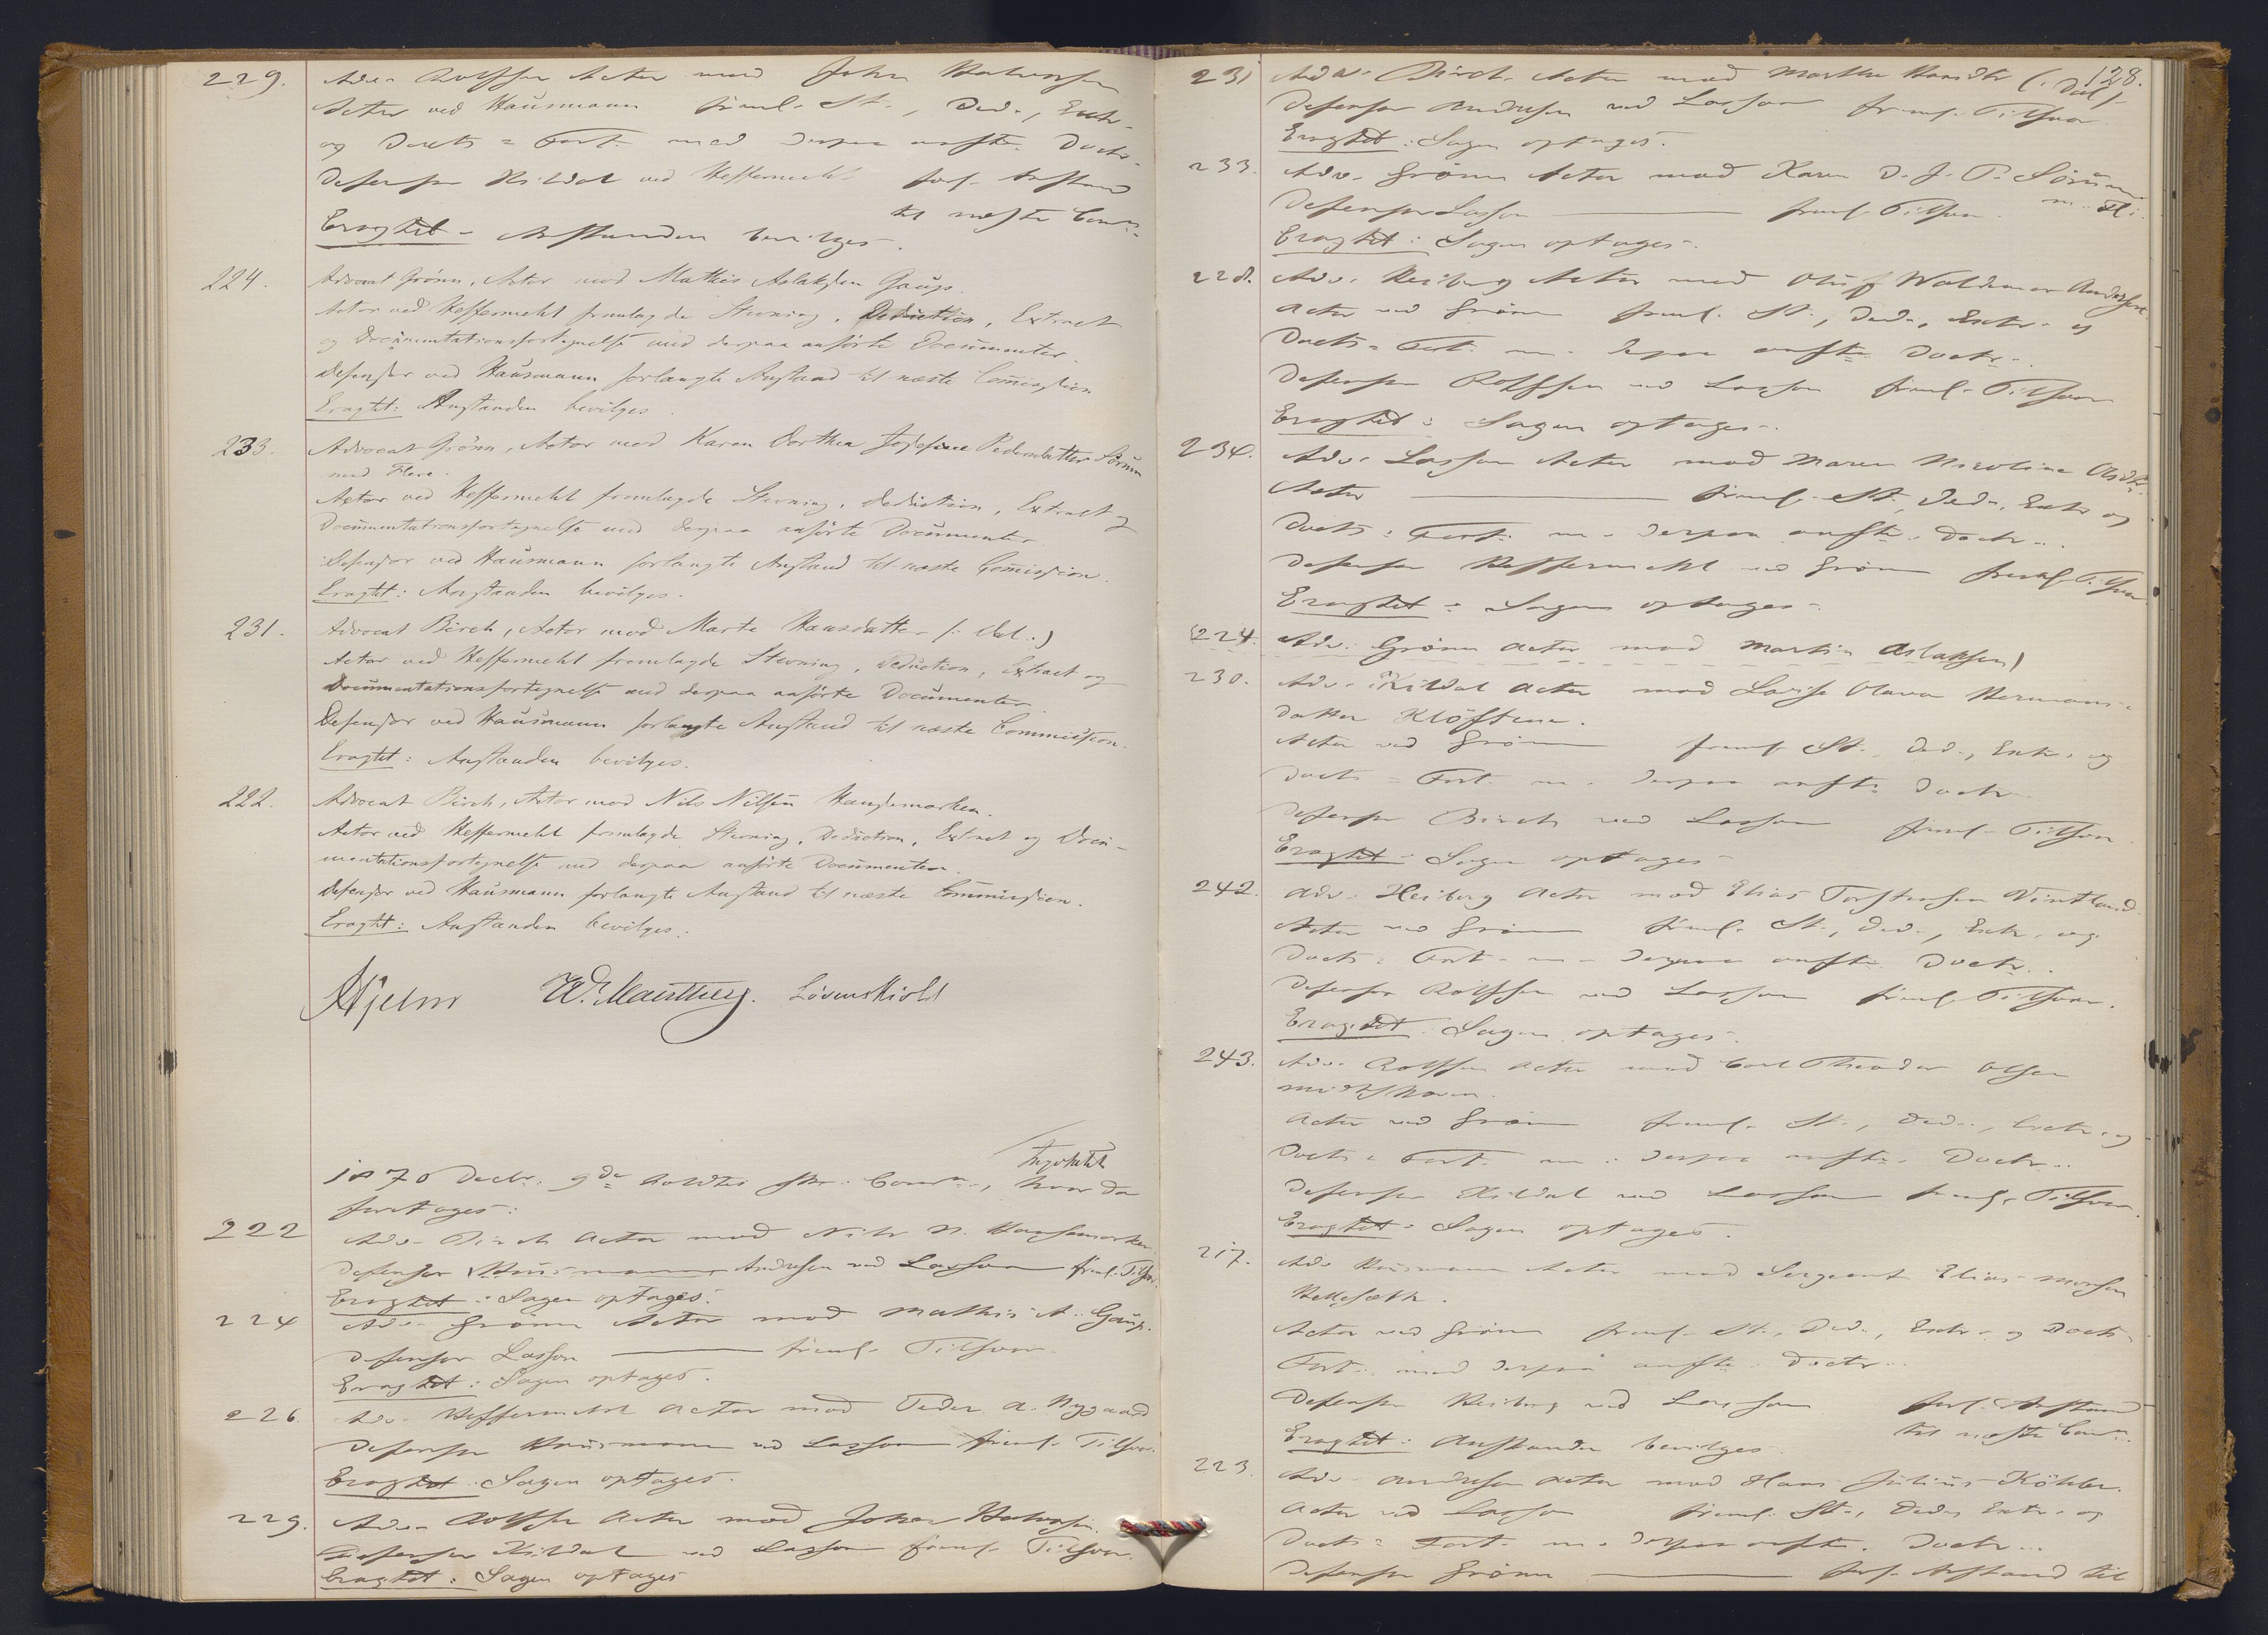 229. Adv. Rolffsen Actor mod Johan Halvorsen
Actor ved Hausmann freml. St., Ded., Extr.
og Docts = Fort. med derpaa anførte Doctr.
Defensor Kildal ved Heffermehl forl. Anstand
til næste Comn.
Eragtet - Anstanden bevilges.
224. Advocat Grönn, Actor mod Mathis Aslaksen Gaup.
Actor ved Heffermehl fremlagde Stevning, Deduction, Extract
og Documentationsfortegnelse med derpaa anförte Documenter.
Defensor ved Hausmann forlangte Anstand til næste Comission
Eragtet: Anstanden bevilges.
233. Advocat Grönn, Actor mod Karen Dorthea Josefine Pedersdatter Sörum
med Flere.
Actor ved Heffermehl fremlagde Stevning, Deduction, Extract og
Documentationsfortegnelse med derpaa anförte Documenter
Defensor ved Hausmann forlangte Anstand til næste Comission.
Eragtet: Anstanden bevilges.
231. Advocat Birch, Actor mod Marte Hansdatter (: Dal :)
Actor ved Heffermehl fremlagde Stevning, Deduction, Extract og
Documentationsfortegnelse med derpaa anförte Documenter
Defensor ved Hausmann forlangte Anstand til næste Commission.
Eragtet: Anstanden bevilges.
222. Advocat Birch, Actor mod Nils Nilsen Hansemarken.
Actor ved Heffermehl fremlagde Stevning, Deduction, Extract og Docu-
mentationsfortegnelse med derpaa anförte Documenter.
Defensor ved Hausmann forlangte Anstand til næste Commission.
Eragtet: Anstanden bevilges.
Hjelm Lövenskiold
1870 Decbr. 9de holdtes Comn., hvor da
foretages:
222 Adv. Birch Actor mod Nils N. Hansemarken.
Defensor Hausmann Andresen ved Lasson freml. Tilsvar.
Eragtet: Sagen optages.
224 Adv. Grönn Actor mod Mathis A. Gaup.
Defensor Lasson freml. Tilsvar
Eragtet: Sagen optages.
226. Adv. Heffermehl Actor mod Peder A. Nygaard
Defensor Hausmann ved Lasson freml. Tilsvar.
Eragtet: Sagen optages.
229. Adv. Rolffsen Actor mod Johan Halvorsen.
Defensor Kildal ved Lasson freml. Tilsvar.
Eragtet: Sagen optages
128.
231 Adv. Birch Actor mod Marthe Hansdtr (: Dal :)
Defensor Andresen ved Lasson freml. Tilsvar
Eragtet: Sagen optages.
233. Adv. Grönn Actor mod Karen D. J. P. Sörum
m. Fl.
Defensor Lasson freml. Tilsvar.
Eragtet: Sagen optages.
228. Adv. Heiberg Actor mod Oluf Waldemar Andersen.
Actor ved Grönn freml. St., Ded., Extr. og
Docts = Fort. m. derpaa anfte Doctr.
Defensor Rolffsen ved Lasson freml. Tilsvar
Eragtet: Sagen optages.
234. Adv. Lasson Actor mod Maren Nicoline Olsdtr.
Actor freml. St., Ded., Extr. og
Docts = Fort. m. derpaa anfte. Doctr.
Defensor Heffermehl ved Grönn freml. Tilsvar.
Eragtet: Sagen optages.
(224. Adv. Grönn Actor mod Martin Aslaksen)
230. Adv. Kildal Actor mod Lovise Olava Hermans-
datter Klöfthun.
Actor ved Grönn freml. St., Ded., Extr. og
Docts = Fort. m. derpaa anfte Doctr
Defensor Birch ved Lasson freml. Tilsvar.
Eragtet: Sagen optages
242. Adv. Heiberg Actor mod Elias Torstensen Vintland.
Actor ved Grönn freml. St., Ded., Extr. og
Docts = Fort. m. derpaa anfte. Doctr.
Defensor Rolffsen ved Lasson freml. Tilsvar.
Eragtet. Sagen optages.
243. Adv. Rolffsen Actor mod Carl Theodor Olsen
Actor ved Grönn freml. St., Ded., Extr. og
Docts = Fort. m. derpaa anfte. Doctr.
Defensor Kildal ved Lasson freml. Tilsvar.
Eragtet: Sagen optages.
217. Adv. Hausmann Actor mod Sergeant Elias Monsen
Hellesæth.
Actor ved Grönn freml. St., Ded., Extr. og Docts
Fort. med derpaa anfte. Doctr.
Defensor Heiberg ved Lasson forl. Anstand
til næste Comn.
Eragtet: Anstanden bevilges.
223. Adv. Andresen Actor mod Hans Julius Köhler.
Actor ved Lasson freml. St., Ded., Extr. og
Docts = Fort. m. derpaa anfte. Doctr.
Defensor Grönn forl. Anstand til